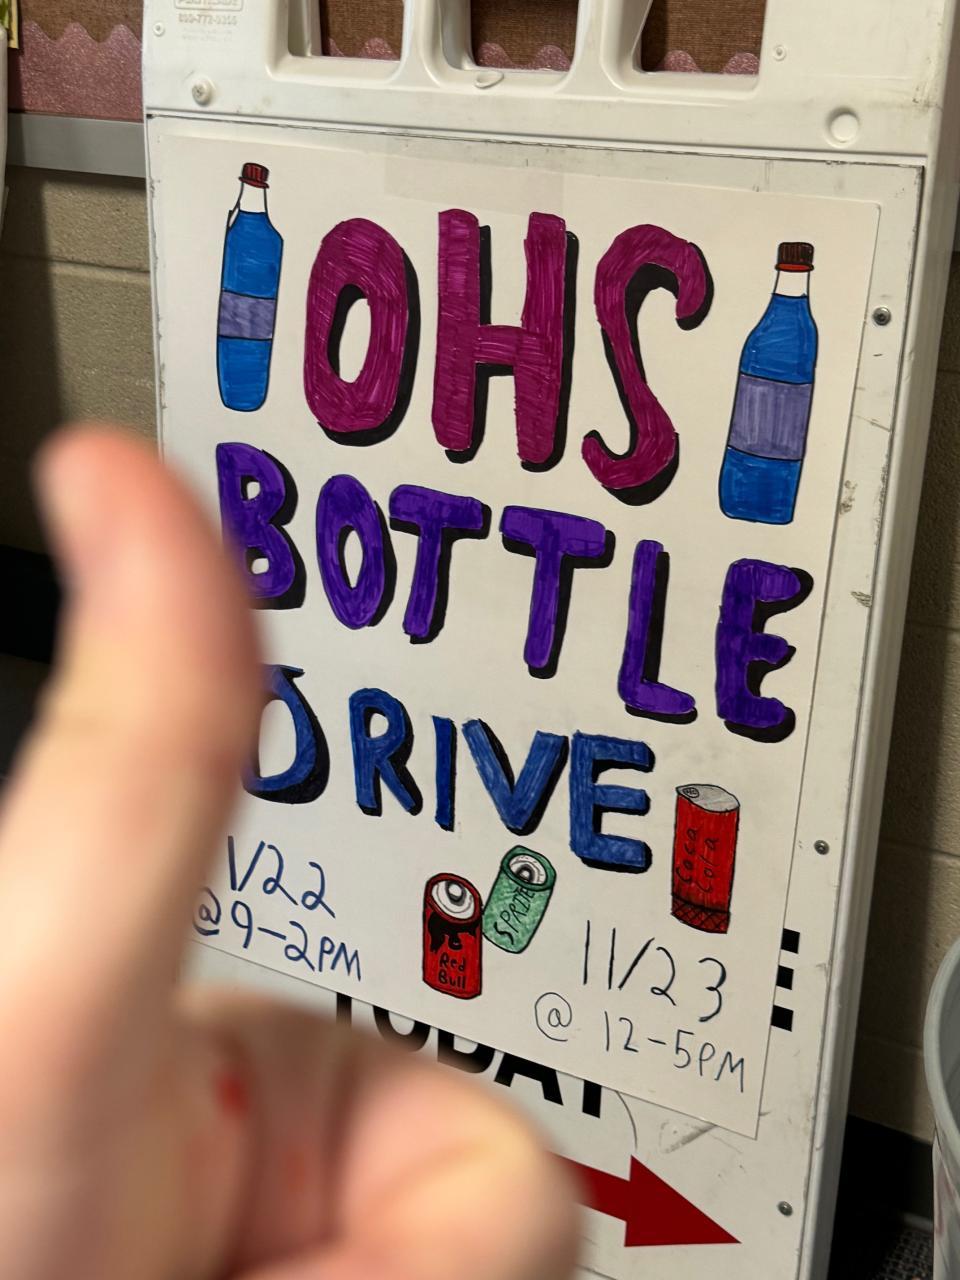 OHS
BOTTLE
DRIVE
1/22
@ 9-2PM
Red
Bull
SPRITE
Coca
Cola
11/23
@ 12-5PM
TODAY